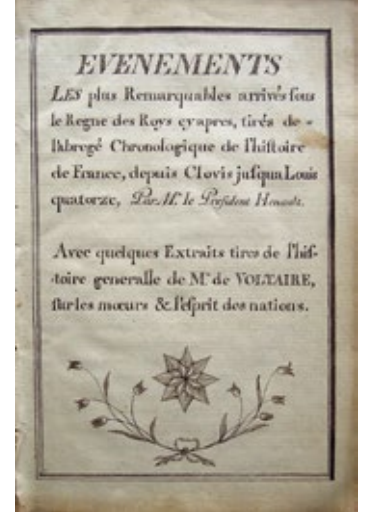 EVENEMENTS
LES plus Remarquables arrivés sous
le Regne des Roys cyapres, tirés de
l'abregé Chronologique de l'histoire
de France, depuis Clovis jusqua Louis
quatorze, Par Mr. le President Henault.
Avec quelques Extraits tires de l'his-
toire generalle de Mr. de VOLTAIRE,
sur les mœurs & l'esprit des nations.